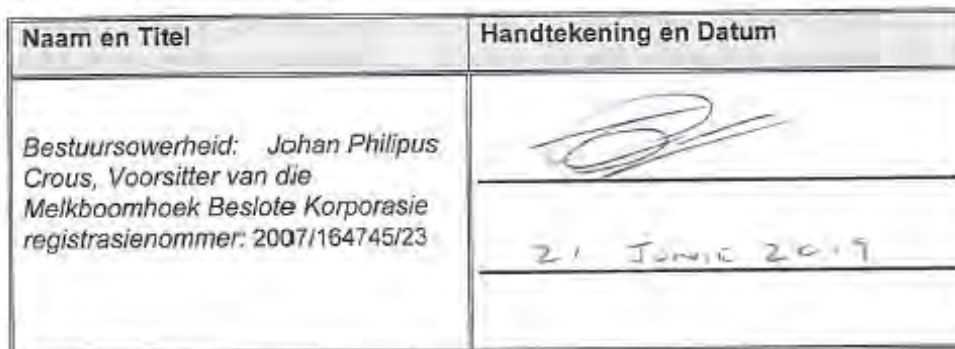 Naam en Titel
Handtekening en Datum
Bestuursowerheid: Johan Philipus
Crous, Voorsitter van die
Melkboomhoek Beslote Korporasie
registrasienommer: 2007/164745/23
21 Junie 2019